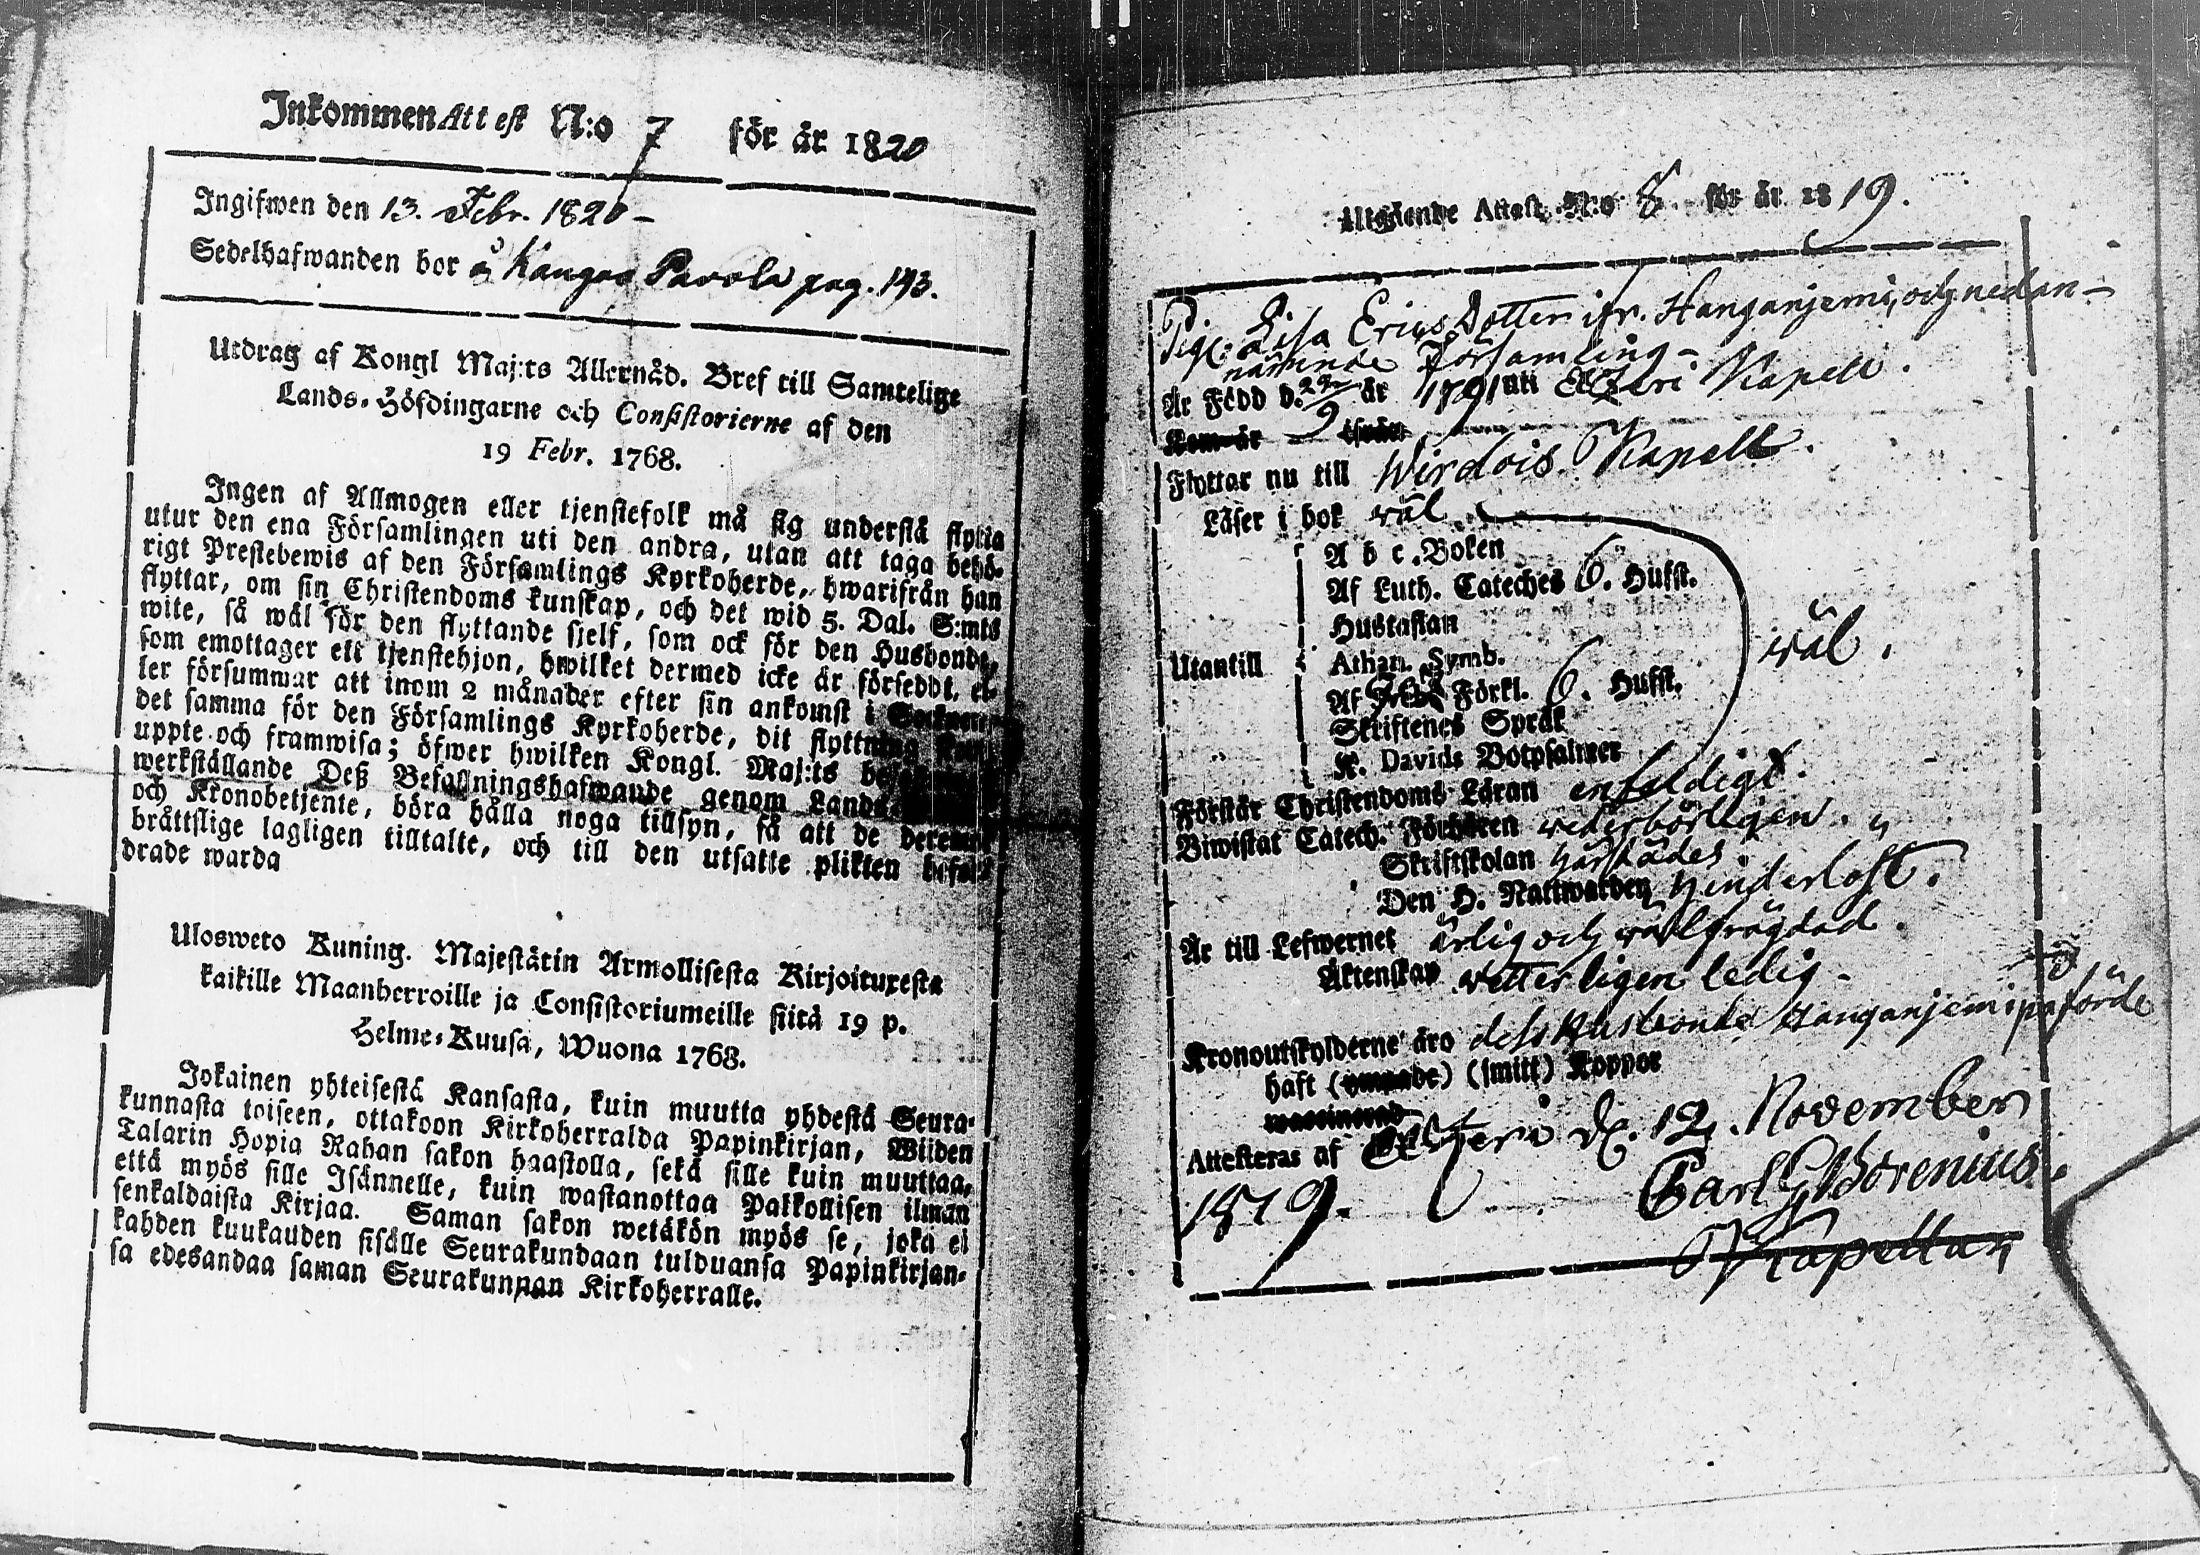 Inkommen Attest N:o 7 för år 1820
Ingifwen den 13. Febr. 1820 –
Sedelhafwanden bor å Kangas Pavola pag. 193.
Utdrag af Kongl Maj:ts Allernåd. Bref till Samtelige
Lands-Höfdingarne och Consistorierne af den
19 Febr. 1768.
Ingen af Allmogen eller tjenstefolk må sig understå flytta
utur den ena Församlingen uti den andra, utan att taga behö-
rigt Prestebewis af den Församlings Kyrkoherde, hwarifrån han
flyttar, om sin Christendoms kunskap, och det wid 5. Dal. S:mts
wite, så wäl för den flyttande sjelf, som ock för den Husbonde,
som emottager ett tjenstehjon, hwilket dermed icke är förseddt, el-
ler försummar att inom 2 månader efter sin ankomst i
det samma för den Församlings Kyrkoherde, dit flyttning
uppte och framwisa; öfwer hwilken Kongl. Maj:ts
werkställande Deß Befallningshafwande genom Lands
och Kronobetjente, böra hålla noga tillsyn, så att de deremot
bråttslige lagligen tilltalte, och till den utsatte plikten befor-
drade warda
Ulosweto Kuning. Majestätin Armollisesta Kirjoituxesta
kaikille Maanherroille ja Consistoriumeille siitä 19 p.
Helme-Kuusa, Wuona 1768.
Jokainen yhteisestä Kansasta, kuin muutta yhdestä Seura-
kunnasta toiseen, ottakoon Kirkoherralda Papinkirjan, Wiiden
Talarin Hopia Rahan sakon haastolla, sekä sille kuin muuttaa,
että myös sille Isännelle, kuin wastanottaa Palkollisen ilman
senkaldaista Kirjaa. Saman sakon wetäkön myös se, joka ei
kahden kuukauden sisälle Seurakundaan tulduansa Papinkirjan-
sa edesandaa saman Seurakunnan Kirkoherralle.
Utgående Attest N:o 8. för år 1819.
Pig: Lisa Ericsdotter ifr. Hanganjemi, och nedan-
nämnde Församling –
Är Född d. 29/9 år 1791 uti Etzeri Kapell.
Kom år
Flyttar nu till Wirdois Kapell.
Läser i bok wäl
A b c. Boken
Af Luth. Cateches 6. Hufst.
Hustaflan
Utantill Athan. Symb.
Af Förkl. 6. Hufst.
Skriftenes Språk
K. Davids Botpsalmer
wäl.
Förstår Christendoms Läran enfaldigt.
Biwistat Catech. Förhören wederbörligen.
Skriftskolan härstädes
Den H. Nattwarden hinderlöst.
Är till Lefwernet ärlig och wälfrägdad.
Äktenskap wetterligen ledig –
Kronoutskylderne äro dess Husbonde Hanganjemi påförde
haft (ympade) (smitt) Koppor
waccinerad
Attesteras af Etzeri d. 12. November
1819. Carl G Borenius.
Kapellan